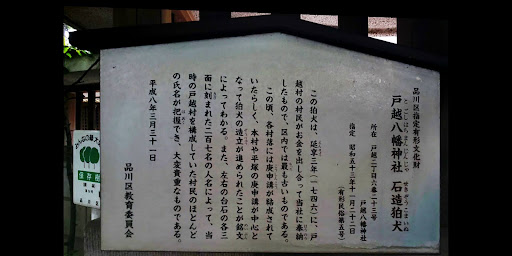 品川区指定有形文化財
戸越八幡神社 石造狛犬
とごしはちまんじんじゃ せきぞうこまいぬ
所在 戸越二丁目六番二十三号
戸越八幡神社
指定 昭和五十三年十一月二十二日
(有形民俗第五号)
この狛犬は、延享三年(一七四六)に、戸
越村の村民がお金を出し合って当社に奉納
したもので、区内では最も古いものである。
この頃、各村落には庚申講が結成されて
いたらしく、本村や平塚の庚申講が中心と
なって狛犬の造立が進められたことが銘文
によってわかる。また、左右の台石の各三
面に刻まれた二百七名の人名によって、当
時の戸越村を構成していた村民のほとんど
の氏名が把握でき、大変貴重なものである。
平成八年三月三十一日
品川区教育委員会
保存樹